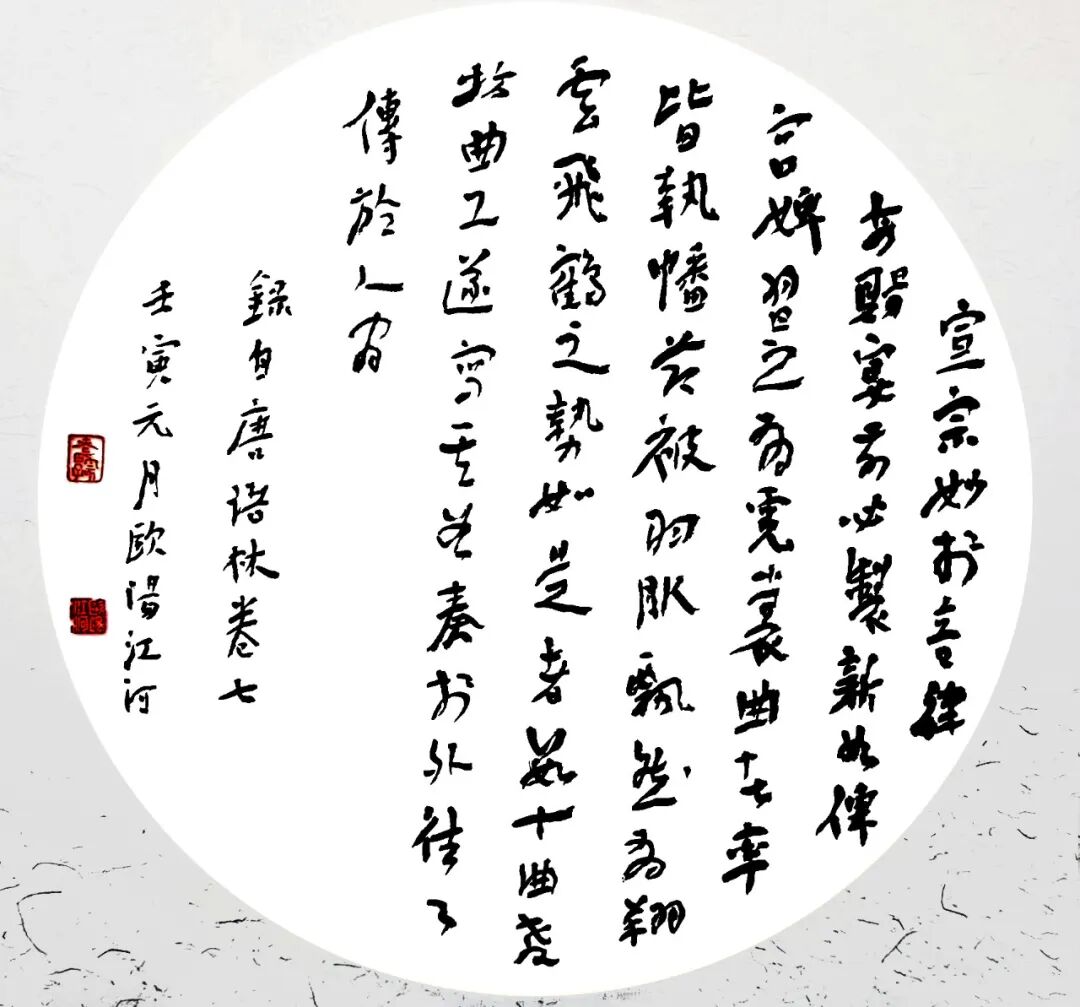 宣宗妙於音律
每賜宴前必製新俾
宮婢習之有霓裳曲者率
皆執幡節被羽服飄然有翔
雲飛鶴之勢如是者數十曲教
坊曲工遂寫其奏於外往往
傳於人間
錄自唐語林卷七
壬寅元月歐陽江河